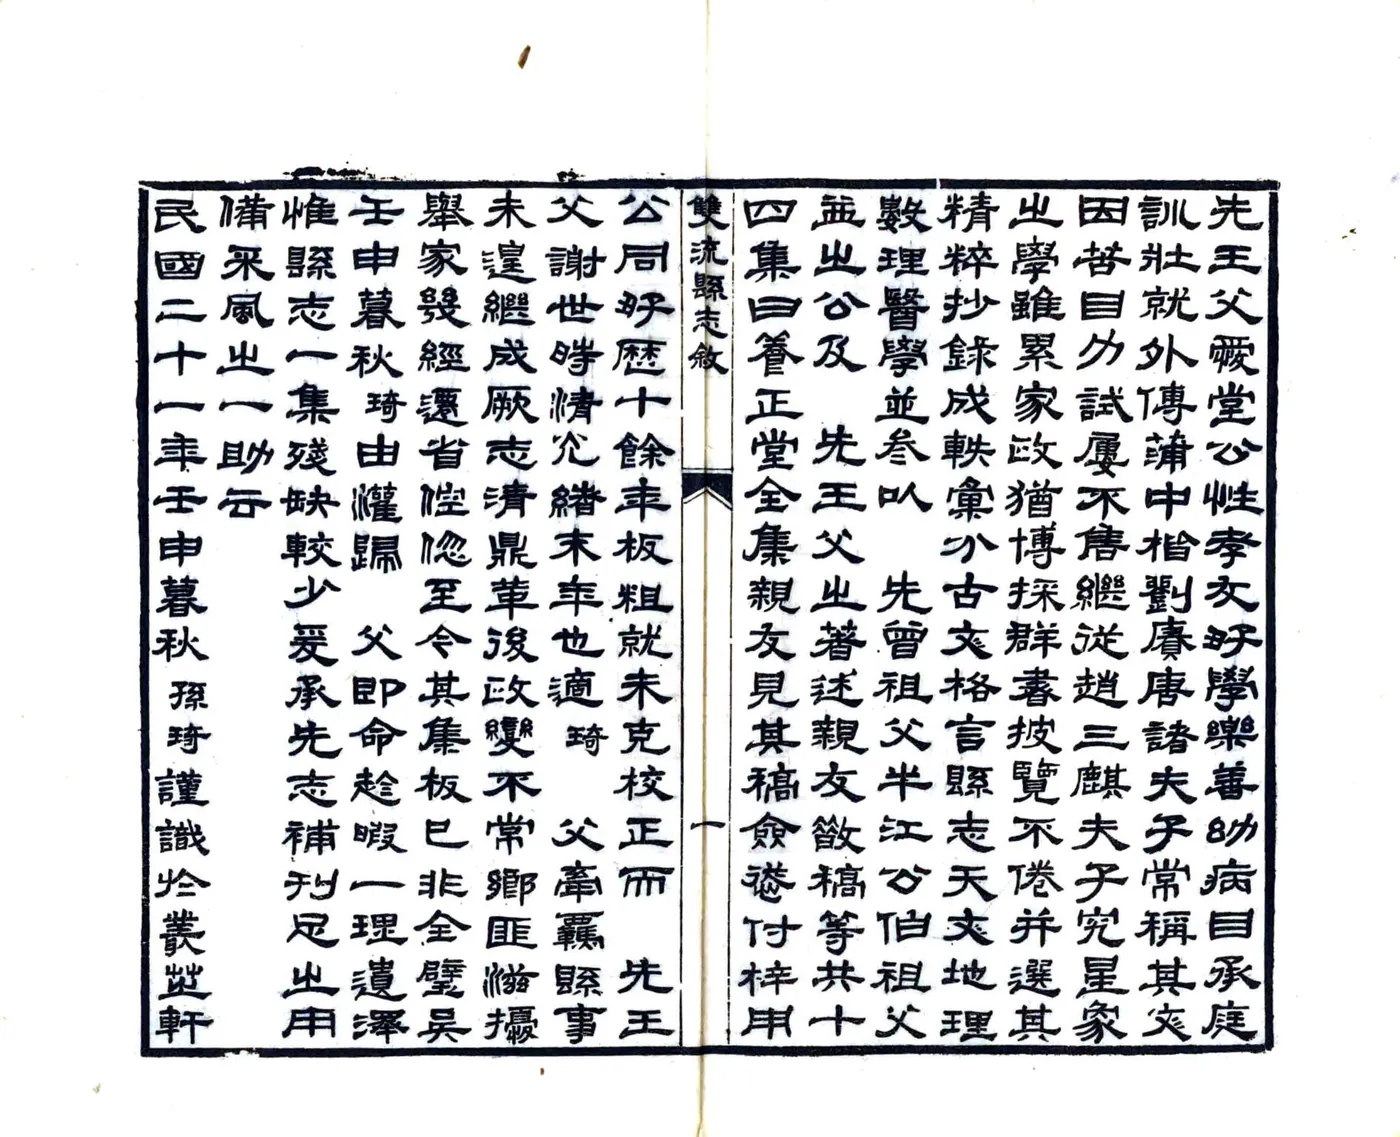 先王父愛堂公性孝友好學樂善幼病目承庭
訓壯就外傳蒲中楷劉賡唐諸夫子常稱其文
因苦目力試屢不售繼從趙三麒夫子究星象
之學雖累家政猶博採群書披覽不倦并選其
精粹抄錄成軼彙分古文格言縣志天文地理
數理醫學並叅以 先曾祖父半江公伯祖父
益之公及 先王父之著述親友徵稿等共十
四集曰養正堂全集親友見其稿僉慫付梓用
雙流縣志敘
一
公同好歷十餘年板粗就未克校正而 先王
父謝世時清光緖末年也適琦 父牽羈縣事
未遑繼成厥志清鼎革後政變不常鄉匪滋擾
舉家幾經遷省倥傯至今其集板已非全璧吳
壬申暮秋琦由灌歸 父即命趁暇一理遺澤
惟縣志一集殘缺較少爰承先志補刊足之用
備采風之一助云
民國二十一年壬申暮秋孫琦謹識於叢芝軒